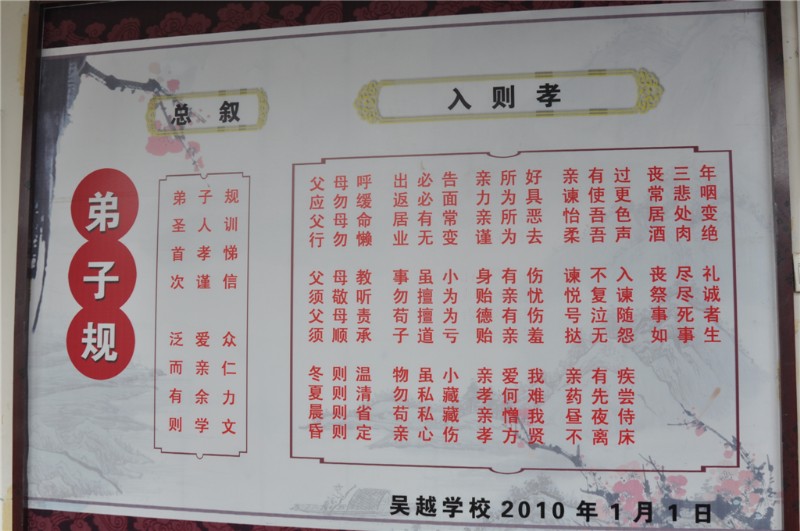 总叙
入则孝
弟子规
弟子规
圣人训
首孝悌
次谨信
泛爱众
而亲仁
有余力
则学文
父母呼 出必告 亲所好 亲有过 丧三年
应勿缓 返必面 力为具 谏使更 常悲咽
父母命 居有常 亲所恶 怡吾色 居处变
行勿懒 业无变 谨为去 柔吾声 酒肉绝
父母教 事虽小 身有伤 谏不入 丧尽礼
须敬听 勿擅为 贻亲忧 悦复谏 祭尽诚
父母责 苟擅为 德有伤 号泣随 事死者
须顺承 子道亏 贻亲羞 挞无怨 如事生
冬则温 物虽小 亲爱我 亲有疾
夏则清 勿私藏 孝何难 药先尝
晨则省 苟私藏 亲憎我 昼夜侍
昏则定 亲心伤 孝方贤 不离床
吴越学校 2010 年 1 月 1 日